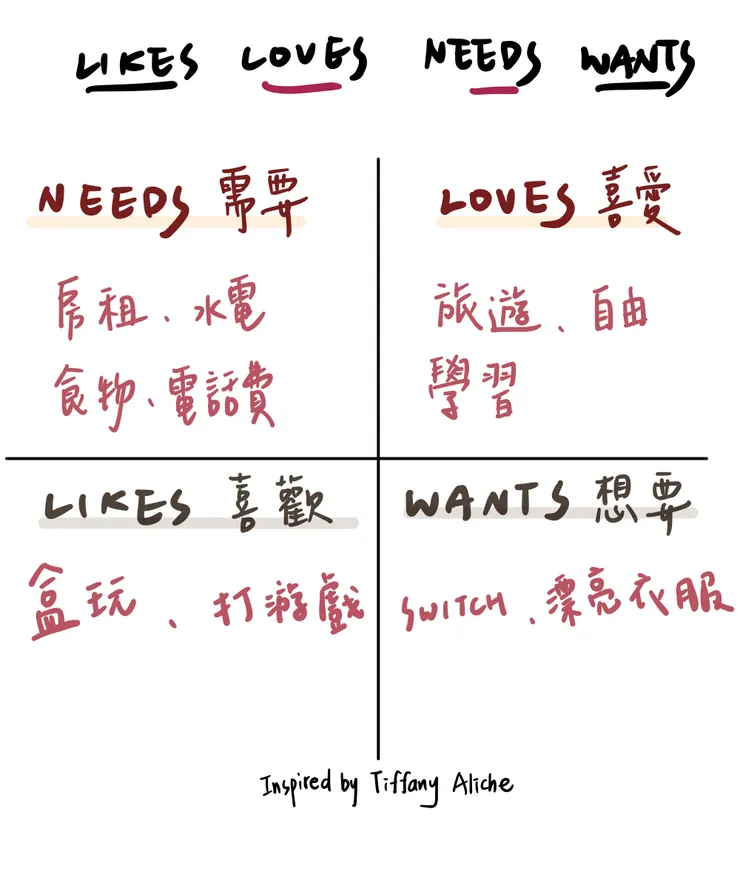 LIKES LOVES NEEDS WANTS
NEEDS 需要
房租、水電
食物、電話費
LOVES 喜愛
旅遊、自由
學習
LIKES 喜歡
盒玩、打游戲
WANTS 想要
SWITCH、漂亮衣服
Inspired by Tiffany Aliche